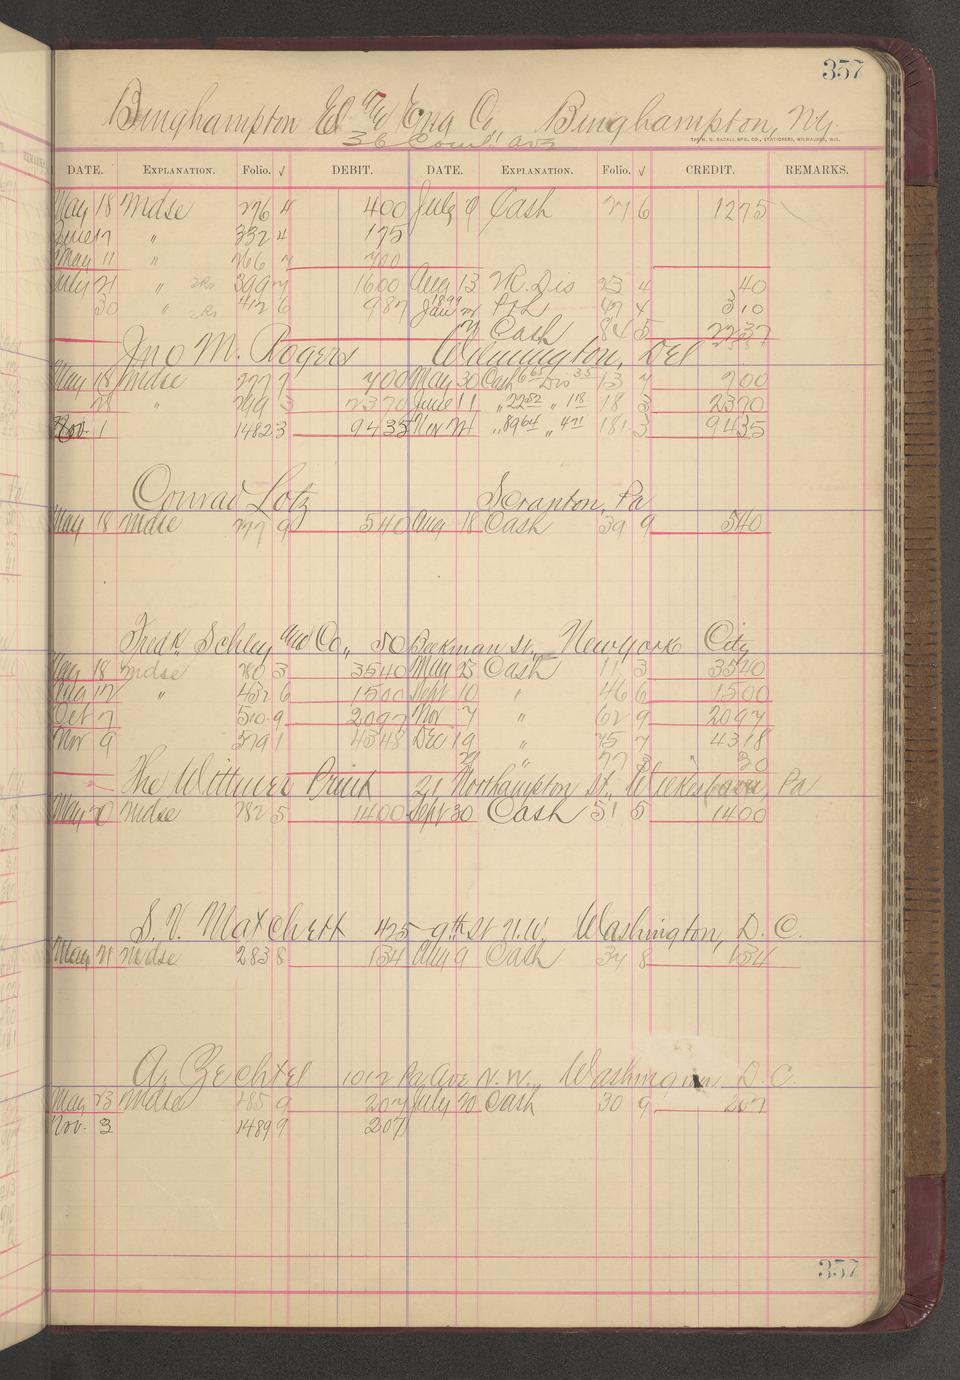 357
Binghampton El and Eng Co Binghampton, N.Y.
36 Court ave
DATE. EXPLANATION. Folio. √ DEBIT. DATE. EXPLANATION. Folio. √ CREDIT. REMARKS.
May 18 Mdse 276 4 400 July 9 Cash 21 6 1275
June 17 " 332 4 175
May 11 " 266 7 700
July 21 " 2Rs 399 7 1600 Aug 13 R. Dis 23 4 40
30 " 2Rs 412 6 987 Jan 1899 P&L 47 4 310
Cash 84 5 2237
Jno M. Rogers Wilmington, Del
May 18 Mdse 277 7 700 May 30 Cash 665 Dis 35 13 7 700
28 " 299 3 2370 June 11 " 2252 " 118 18 3 2370
Nov. 1 1482 3 9435 Nov 21 " 8964 " 471 181 3 9435
Conrad Lotz Scranton, Pa
May 18 Mdse 277 9 540 Aug 18 Cash 39 9 540
Fredk. Schley and Co., 50 Beekman St., New york City
May 18 Mdse 280 3 3540 May 25 Cash 11 3 3540
Aug 12 " 432 6 1500 Sept 10 " 46 6 1500
Oct 7 510 9 2097 Nov 7 " 62 9 2097
Nov 9 579 1 4348 Dec 19 " 75 7 4318
21 " 77 3 30
The Wittmer Print 21 Northampton St., Wilkesbarre Pa
May 20 Mdse 282 5 1400 Sept 30 Cash 51 5 1400
S. V. Matchett 425-9th St N.W. Washington, D. C.
May 21 Mdse 283 8 134 Aug 9 Cash 37 8 134
A. Zechtel 1012 Pa Ave N.W., Washington, D.C.
May 23 Mdse 285 9 207 July 20 Cash 30 9 207
Nov. 3 1489 9 207
357